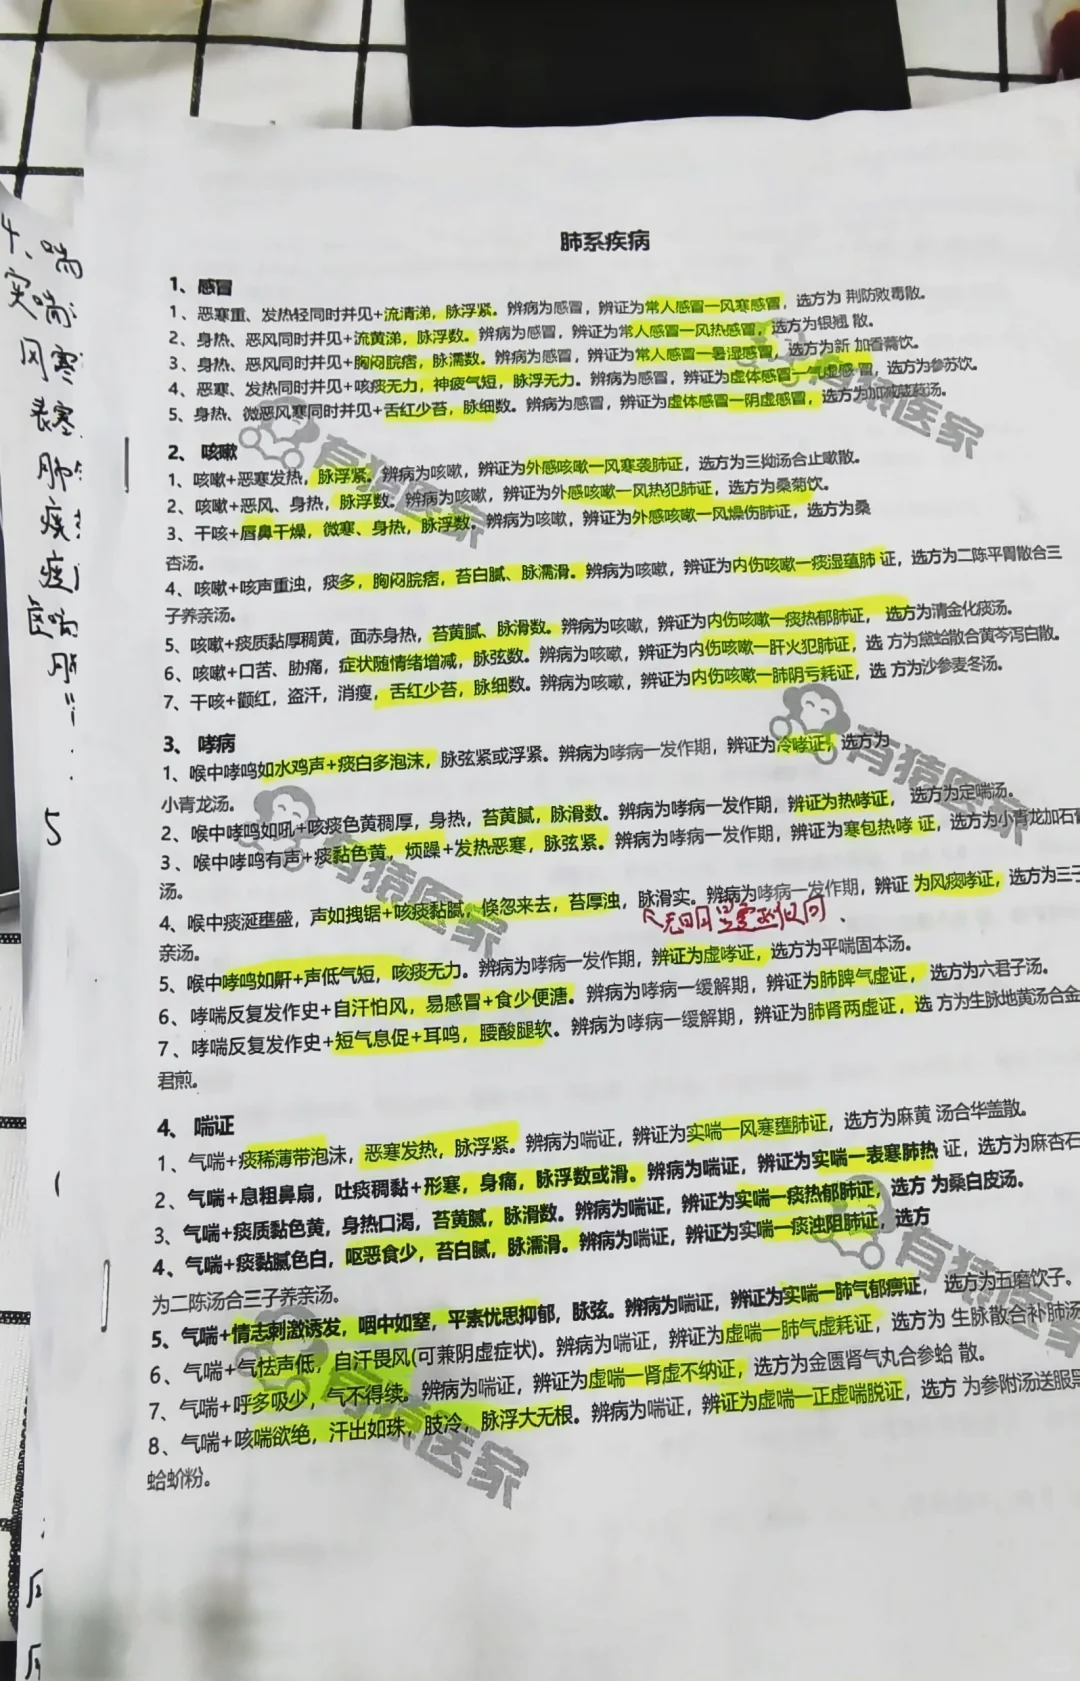 肺系疾病
1、感冒
1、恶寒重、发热轻同时并见+流清涕，脉浮紧。辨病为感冒，辨证为常人感冒一风寒感冒，选方为 荆防败毒散。
2、身热、恶风同时并见+流黄涕，脉浮数。辨病为感冒，辨证为常人感冒一风热感冒，选方为银翘 散。
3、身热、恶风同时并见+胸闷脘痞，脉濡数。辨病为感冒，辨证为常人感冒一暑湿感冒，选方为新 加香薷饮。
4、恶寒、发热同时并见+咳痰无力，神疲气短，脉浮无力。辨病为感冒，辨证为虚体感冒一气虚感 冒，选方为参苏饮。
5、身热、微恶风寒同时并见+舌红少苔，脉细数。辨病为感冒，辨证为虚体感冒一阴虚感冒，选方为加减葳蕤汤。
2、咳嗽
1、咳嗽+恶寒发热，脉浮紧。辨病为咳嗽，辨证为外感咳嗽一风寒袭肺证，选方为三拗汤合止嗽散。
2、咳嗽+恶风、身热，脉浮数。辨病为咳嗽，辨证为外感咳嗽一风热犯肺证，选方为桑菊饮。
3、干咳+唇鼻干燥，微寒、身热，脉浮数。辨病为咳嗽，辨证为外感咳嗽一风燥伤肺证，选方为桑
杏汤。
4、咳嗽+咳声重浊，痰多，胸闷脘痞，苔白腻、脉濡滑。辨病为咳嗽，辨证为内伤咳嗽一痰湿蕴肺 证，选方为二陈平胃散合三
子养亲汤。
5、咳嗽+痰质黏厚稠黄，面赤身热，苔黄腻、脉滑数。辨病为咳嗽，辨证为内伤咳嗽一痰热郁肺证， 选方为清金化痰汤。
6、咳嗽+口苦、胁痛，症状随情绪增减，脉弦数。辨病为咳嗽，辨证为内伤咳嗽一肝火犯肺证，选 方为黛蛤散合黄芩泻白散。
7、干咳+颧红，盗汗，消瘦，舌红少苔，脉细数。辨病为咳嗽，辨证为内伤咳嗽一肺阴亏耗证，选 方为沙参麦冬汤。
3、哮病
1、喉中哮鸣如水鸡声+痰白多泡沫，脉弦紧或浮紧。辨病为哮病一发作期，辨证为冷哮证，选方为
小青龙汤。
2、喉中哮鸣如吼+咳痰色黄稠厚，身热，苔黄腻，脉滑数。辨病为哮病一发作期，辨证为热哮证， 选方为定喘汤。
3、喉中哮鸣有声+痰黏色黄，烦躁+发热恶寒，脉弦紧。辨病为哮病一发作期，辨证为寒包热哮 证，选方为小青龙加石膏
汤。
4、喉中痰涎壅盛，声如拽锯+咳痰黏腻，倏忽来去，苔厚浊，脉滑实。辨病为哮病一发作期，辨证 为风痰哮证，选方为三子
亲汤。
5、喉中哮鸣如鼾+声低气短，咳痰无力。辨病为哮病一发作期，辨证为虚哮证，选方为平喘固本汤。
6、哮喘反复发作史+自汗怕风，易感冒+食少便溏。辨病为哮病一缓解期，辨证为肺脾气虚证， 选方为六君子汤。
7、哮喘反复发作史+短气息促+耳鸣，腰酸腿软。辨病为哮病一缓解期，辨证为肺肾两虚证，选 方为生脉地黄汤合金
君煎。
4、喘证
1、气喘+痰稀薄带泡沫，恶寒发热，脉浮紧。辨病为喘证，辨证为实喘一风寒壅肺证，选方为麻黄 汤合华盖散。
2、气喘+息粗鼻扇，吐痰稠黏+形寒，身痛，脉浮数或滑。辨病为喘证，辨证为实喘一表寒肺热 证，选方为麻杏石
3、气喘+痰质黏色黄，身热口渴，苔黄腻，脉滑数。辨病为喘证，辨证为实喘一痰热郁肺证，选方 为桑白皮汤。
4、气喘+痰黏腻色白，呕恶食少，苔白腻，脉濡滑。辨病为喘证，辨证为实喘一痰浊阻肺证，选方
为二陈汤合三子养亲汤。
5、气喘+情志刺激诱发，咽中如窒，平素忧思抑郁，脉弦。辨病为喘证，辨证为实喘一肺气郁痹证， 选方为五磨饮子。
6、气喘+气怯声低，自汗畏风(可兼阴虚症状)。辨病为喘证，辨证为虚喘一肺气虚耗证，选方为 生脉散合补肺汤
7、气喘+呼多吸少，气不得续。辨病为喘证，辨证为虚喘一肾虚不纳证，选方为金匮肾气丸合参蛤 散。
8、气喘+咳喘欲绝，汗出如珠，肢冷，脉浮大无根。辨病为喘证，辨证为虚喘一正虚喘脱证，选方 为参附汤送服黑
蛤蚧粉。
4、喘
实喘
风寒
表寒
肺
痰
痰
虚喘
肺
5
有猿医家
有猿医家
有猿医家
有猿医家
有猿医家
有猿医家